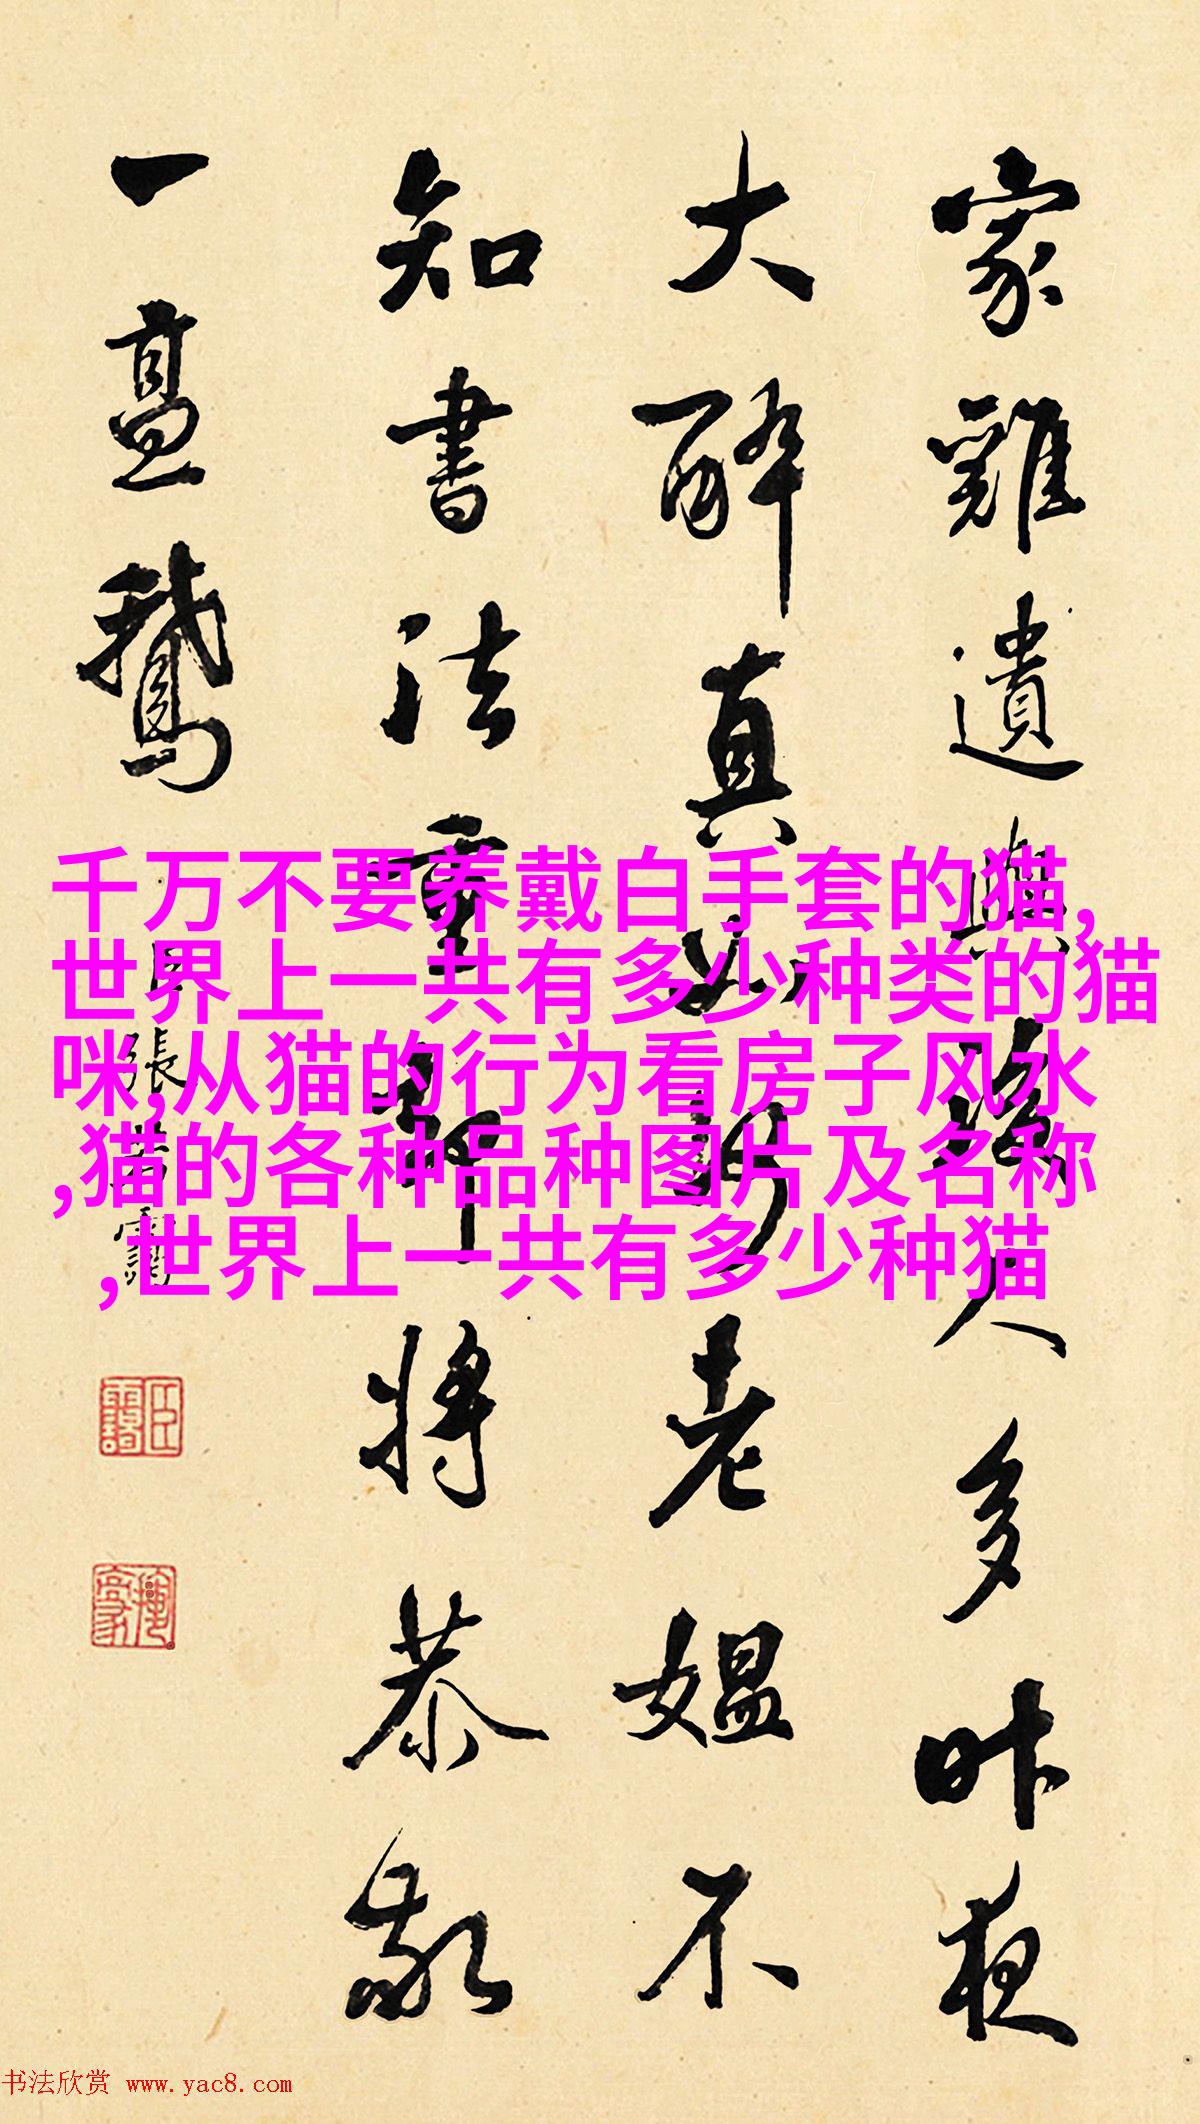 家雞遺與人多昨夜
大醉真如老媼不
知書法重將恭敬
一鵝
臣張若靄
千万不要养戴白手套的猫,
世界上一共有多少种类的猫
咪,从猫的行为看房子风水
,猫的各种品种图片及名称
,世界上一共有多少种猫
书法欣赏 www.yac8.com